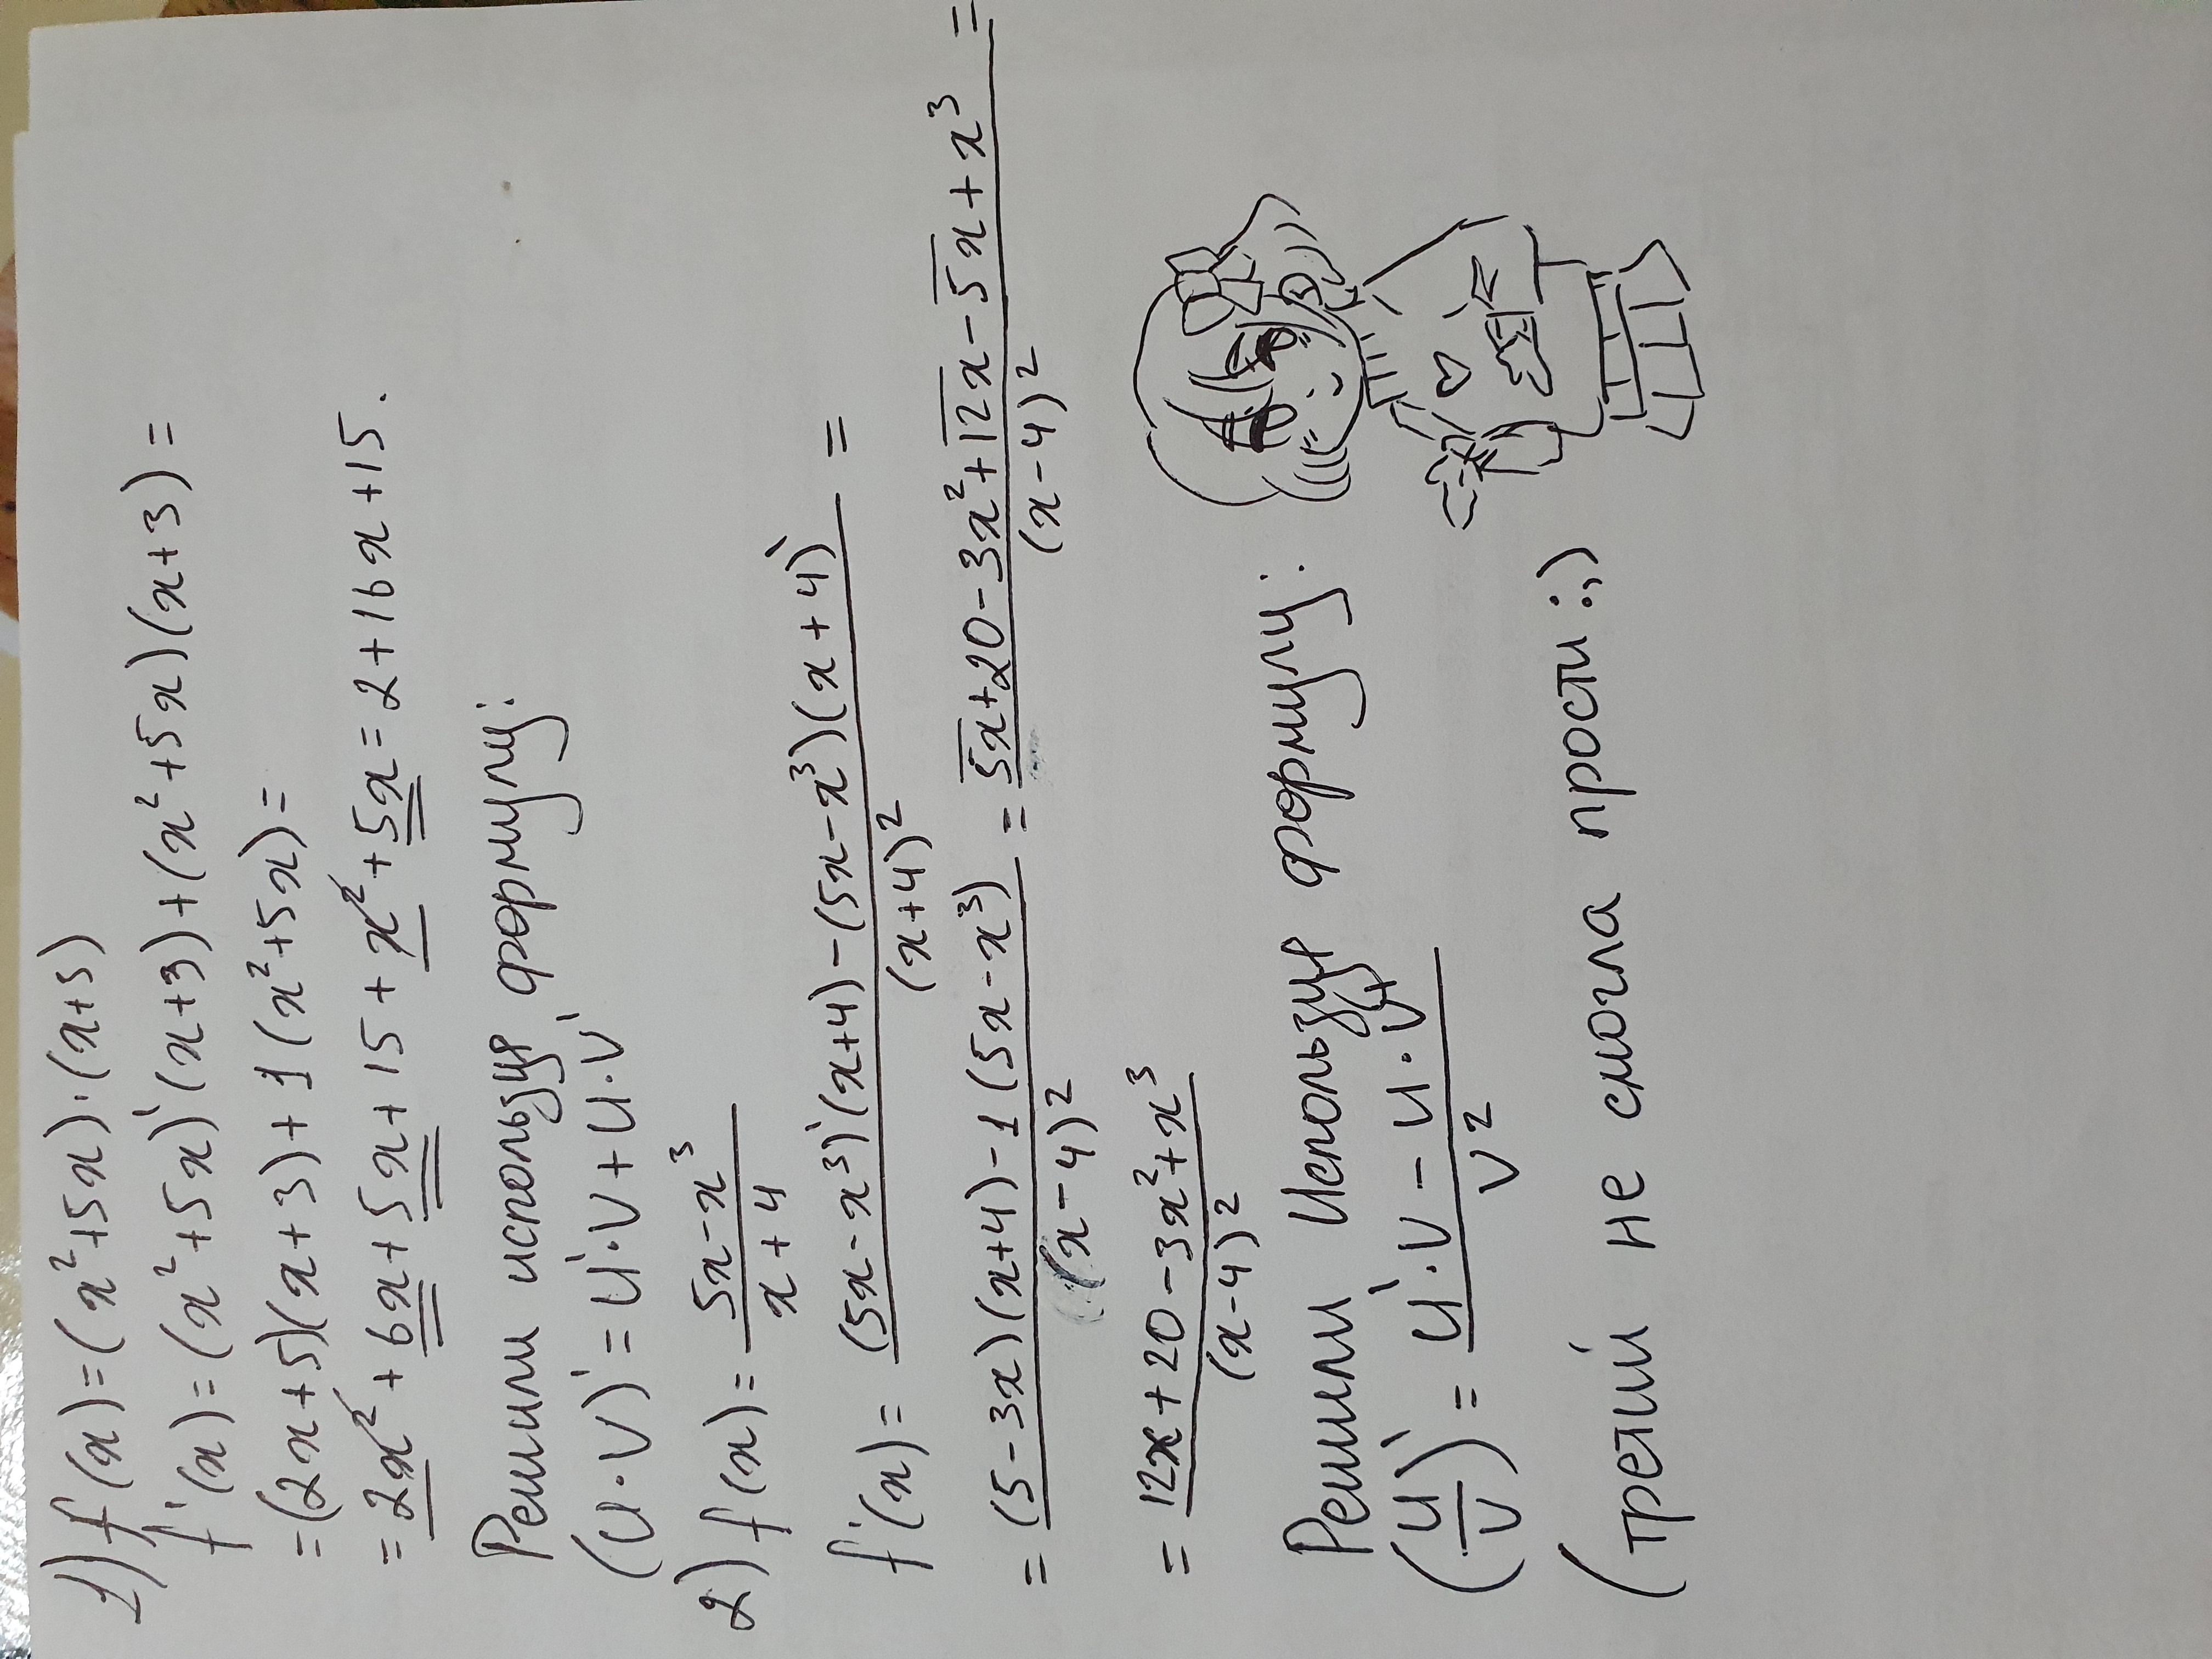 1) f(x)=(x²+5x)·(x+3)
f'(x)=(x²+5x)'(x+3)+(x²+5x)(x+3)=
=(2x+5)(x+3)+1(x²+5x)=
=2x²+6x+5x+15+x²+5x=2+16x+15.
Решили используя формулу:
(u·v)'=u'·v+u·v'
2) f(x)=(5x-x³)/(x+4)
f'(x)=((5x-x³)'(x+4)-(5x-x³)(x+4)')/(x+4)²=
=((5-3x)(x+4)-1(5x-x³))/(x-4)²=(5x+20-3x²+12x-5x+x³)/(x-4)²=
=(12x+20-3x²+x³)/(x-4)²
Решили используя формулу:
(u/v)'=(u'·v-u·v')/v²
(третий не смогла прости:,)